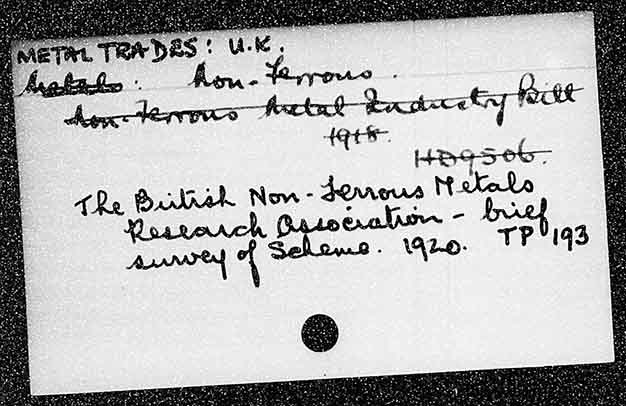 METAL TRADES: U.K.
Metals: Non-Ferrous.
Non-Ferrous Metal Industry Bill
1918.
HD9506.
The British Non-Ferrous Metals
Research Association - brief
survey of Scheme. 1920. TP 193